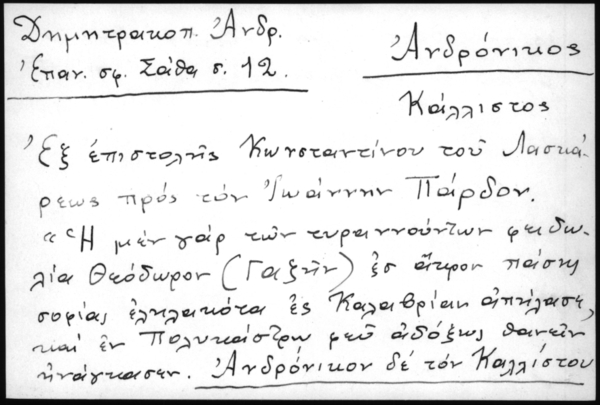 Δημητρακοπ. Ἀνδρ.
Ἐπαν. σφ. Σάθα σ. 12.
Ἀνδρόνικος
Κάλλιστος
Ἐξ ἐπιστολῆς Κωνσταντίνου τοῦ Λασκά-
ρεως πρός τόν Ἰωάννην Πάρδον.
"Ἡ μέν γάρ τῶν τυραννούντων φειδω-
λία Θεόδωρον (Γαζῆν) ἐς ἄκρον πάσης
σοφίας ἐληλακότα ἐς Καλαβρίαν ἀπήλασε,
καί ἐν Πολυκάστρῳ φεῦ ἀδόξως θανεῖν
ἠνάγκασεν. Ἀνδρόνικον δέ τόν Καλλίστου